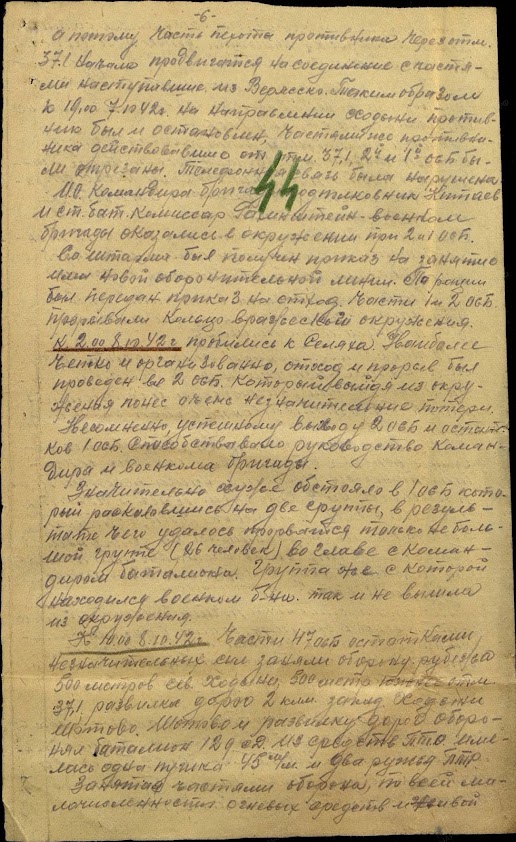 -6-
а потому часть пехоты противника через отм.
37.1 начало продвигатся на соединение с частя-
ми наступившие из Верясско. Таким образом
к 19.00 7.10.42г. на направлении Ходыни против-
ник был и остановлен, частями же противни-
ка действовавшие от отм. 37.1, 2й и 1й осб бы-
ли отрезаны. Телефонная связь была нарушена
И.О. Командира бригады подполковник Китаев
и ст. бат. комиссар - военком
бригады оказались в окружении при 2 и 1 осб.
44
Со штаба был получен приказ на занятие
ими новой оборонительной линии. По рации
был передан приказ на отход. Части 1 и 2 осб
прорывали кольцо вражеской окружения.
к 2.00 8.10.42г. пробились к Селяха. Наиболее
четко и организованно, отход и прорыв был
проведен 2 осб. Который выйдя из окру-
жения понес очень незначительные потери.
Несомненно, успешному выходу 2 осб и остат-
ков 1 осб. Способствовало руководство Коман-
дира и военкома бригады.
Значительно хуже обстояло в 1 осб кото-
рый расколовшись на две группы, в резуль-
тате чего удалось прорватся только неболь-
шой группе (26 человек) во главе с коман-
диром баталиона. Группа же с которой
находился военком б-на. так и не вышла
из окружения.
К 10.00 8.10.42г. Части 47 осб остатками,
незначительных сил заняли оборону рубежа
500 метров сев. Ходыни, 500 метр отм.
37.1 развилка дорог 2 км. запад. Ходыни
Шотово. Шотово и развилку дорог оборо-
нял баталион 129 сд. Из средств ПТО име-
лась одна пушка 45 м/м и два ружья ПТР.
Занятая частями оборона, по всей ма-
лочисленности огневых средств и живой